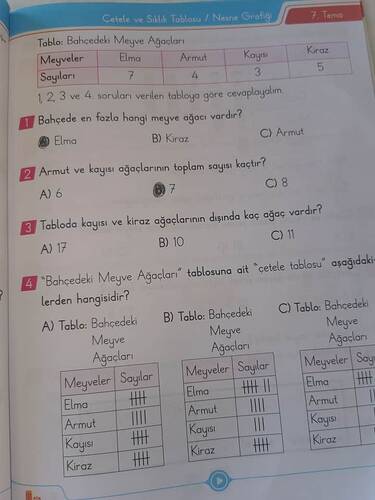 Çetele ve Sıklık Tablosu / Nesne Grafiği
7. Tema
Tablo: Bahçedeki Meyve Ağaçları
Meyveler Elma Armut Kayısı Kiraz
Sayıları 7 4 3 5
1, 2, 3 ve 4. soruları verilen tabloya göre cevaplayalım.
1 Bahçede en fazla hangi meyve ağacı vardır?
A) Elma B) Kiraz C) Armut
2 Armut ve kayısı ağaçlarının toplam sayısı kaçtır?
A) 6 B) 7 C) 8
3 Tabloda kayısı ve kiraz ağaçlarının dışında kaç ağaç vardır?
A) 17 B) 10 C) 11
4 "Bahçedeki Meyve Ağaçları" tablosuna ait "çetele tablosu" aşağıdaki-
lerden hangisidir?
A) Tablo: Bahçedeki
Meyve
Ağaçları
Meyveler Sayılar
Elma
Armut
Kayısı
Kiraz
B) Tablo: Bahçedeki
Meyve
Ağaçları
Meyveler Sayılar
Elma
Armut
Kayısı
Kiraz
C) Tablo: Bahçedeki
Meyve
Ağaçları
Meyveler
Elma
Armut
Kayısı
Kiraz